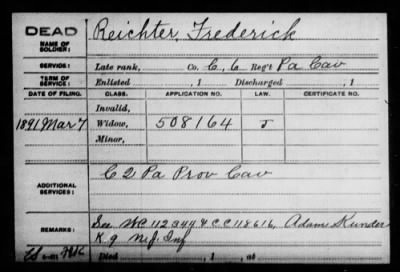 DEAD
NAME OF SOLDIER: Reichter, Frederick
SERVICE: Late rank, Co. C, 6 Reg't Pa Cav
TERM OF SERVICE: Enlisted , 1 Discharged , 1
DATE OF FILING. CLASS. APPLICATION NO. LAW. CERTIFICATE NO.
Invalid,
1891 Mar 7 Widow, 508164
Minor,
ADDITIONAL SERVICES: C 2 Pa Prov Cav
REMARKS: See WC 112344 & CC 118616, Adam Kunder
K 9 Inf
Died , 1 , at